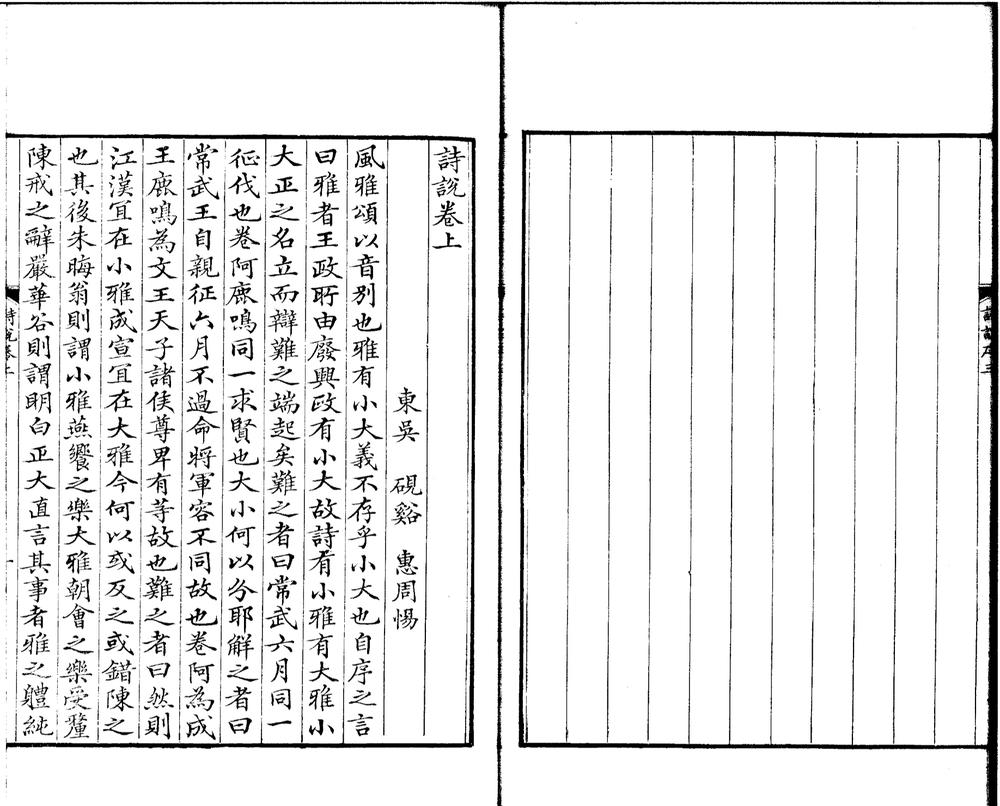 詩説序 三
詩說卷上
東吳 硯谿 惠周惕
風雅頌以音别也雅有小大義不存乎小大也自序之言
曰雅者王政所由廢興政有小大故詩有小雅有大雅小
大正之名立而辯難之端起矣難之者曰常武六月同一
征伐也卷阿鹿鳴同一求賢也大小何以分耶解之者曰
常武王自親征六月不過命將軍容不同故也卷阿為成
王鹿鳴為文王天子諸侯尊卑有等故也難之者曰然則
江漢宜在小雅成宣宜在大雅今何以或反之或錯陳之
也其後朱晦翁則謂小雅燕饗之樂大雅朝會之樂受釐
陳戒之辭嚴華谷則謂明白正大直言其事者雅之軆純
詩說卷上 一